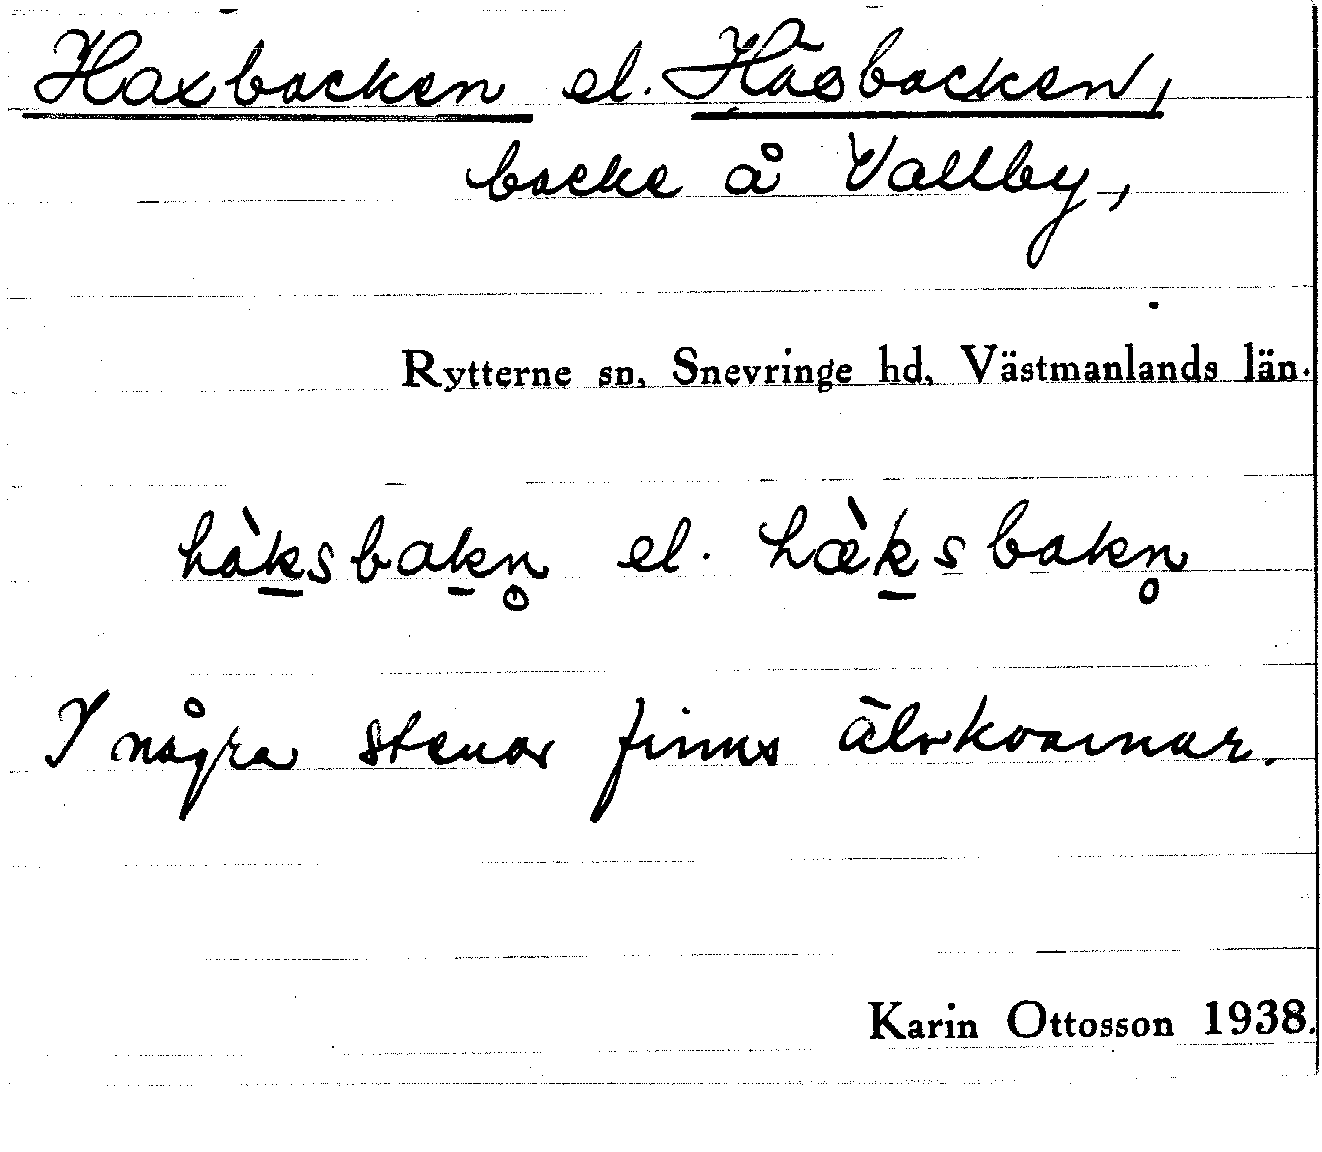 Haxbacken el. Häsbacken,
backe å Vallby,
Rytterne sn, Snevringe hd, Västmanlands län.
hàksbakn̥ el. hæ̀ksbakn̥
I några stenar finns älvkvarnar.
Karin Ottosson 1938.